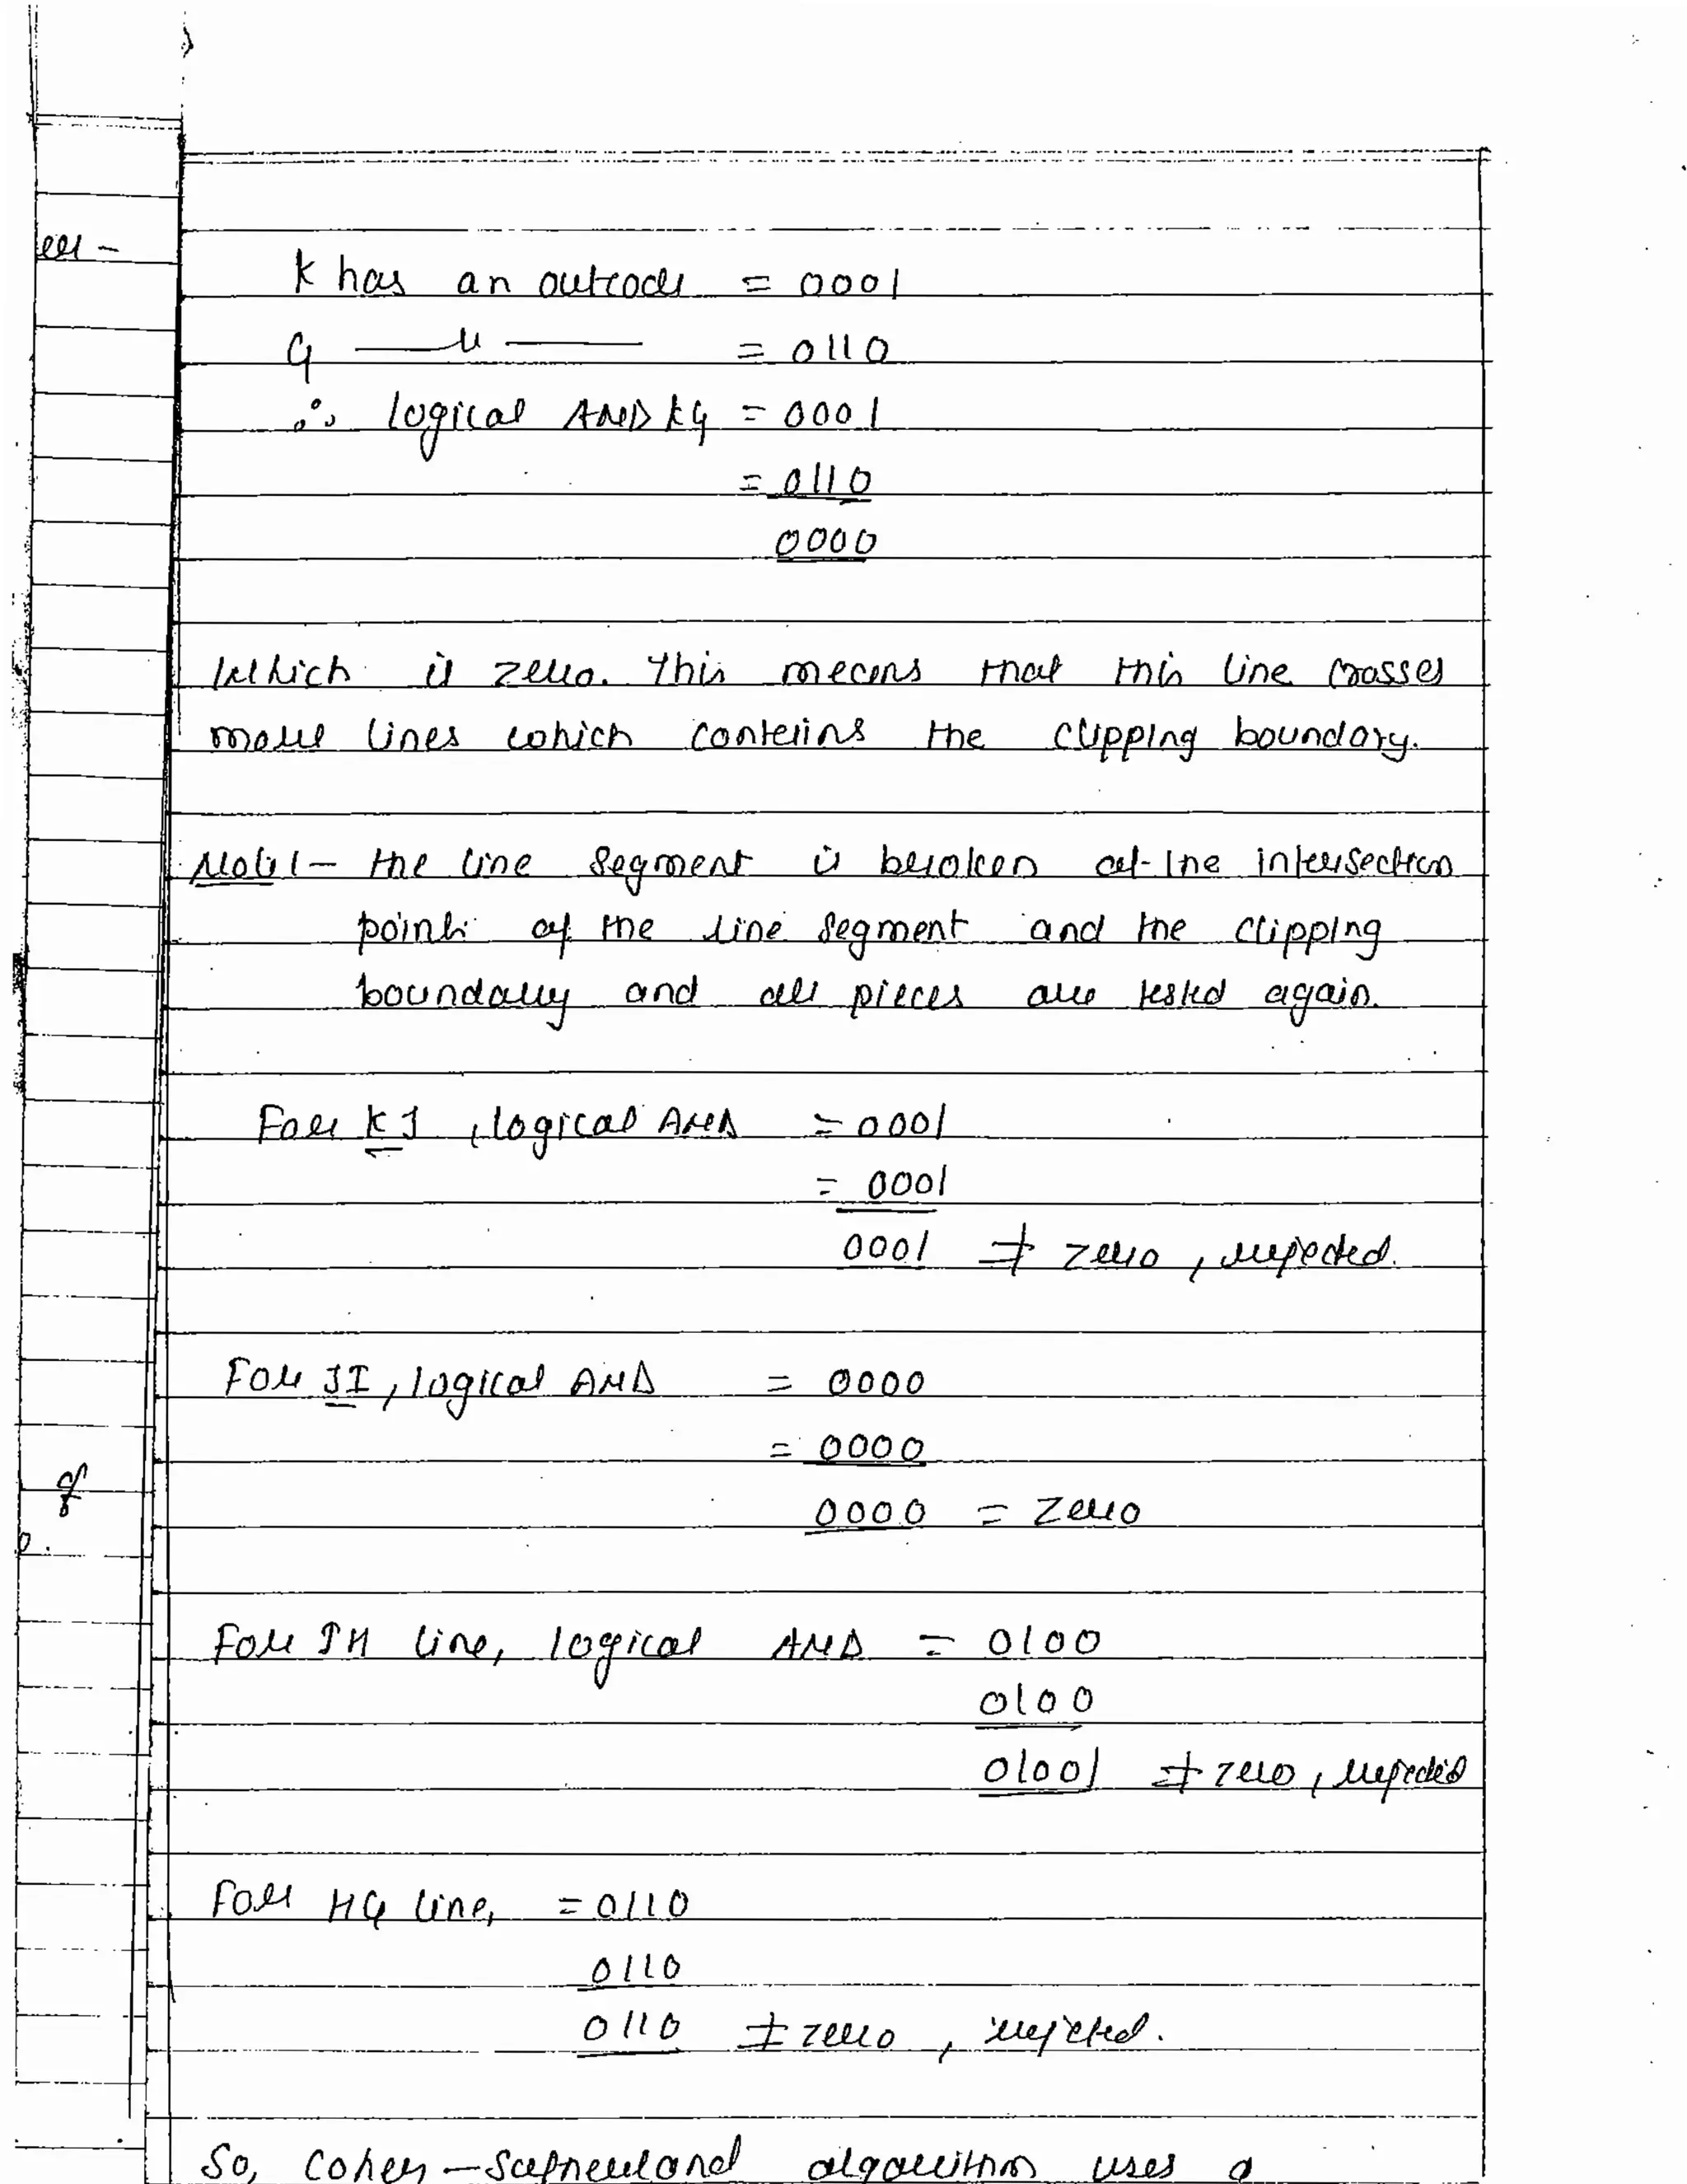 er -
K has an outcode = 0001
G —— 〃 —— = 0110
∴ logical AND KG = 0001
= 0110
0000
Which is zero. This means that this line crosses
more lines which contains the clipping boundary.
Note 1 - the line segment is broken at the intersection
points of the line segment and the clipping
boundary and all pieces are tested again.
For KJ, logical AND = 0001
= 0001
0001 ≠ zero, rejected.
For JI, logical AND = 0000
= 0000
0000 = zero
of
For IH line, logical AND = 0100
0100
01001 ≠ zero, rejected
For HG line, = 0110
0110
0110 ≠ zero, rejected.
So, Cohen - Sutherland algorithm uses a